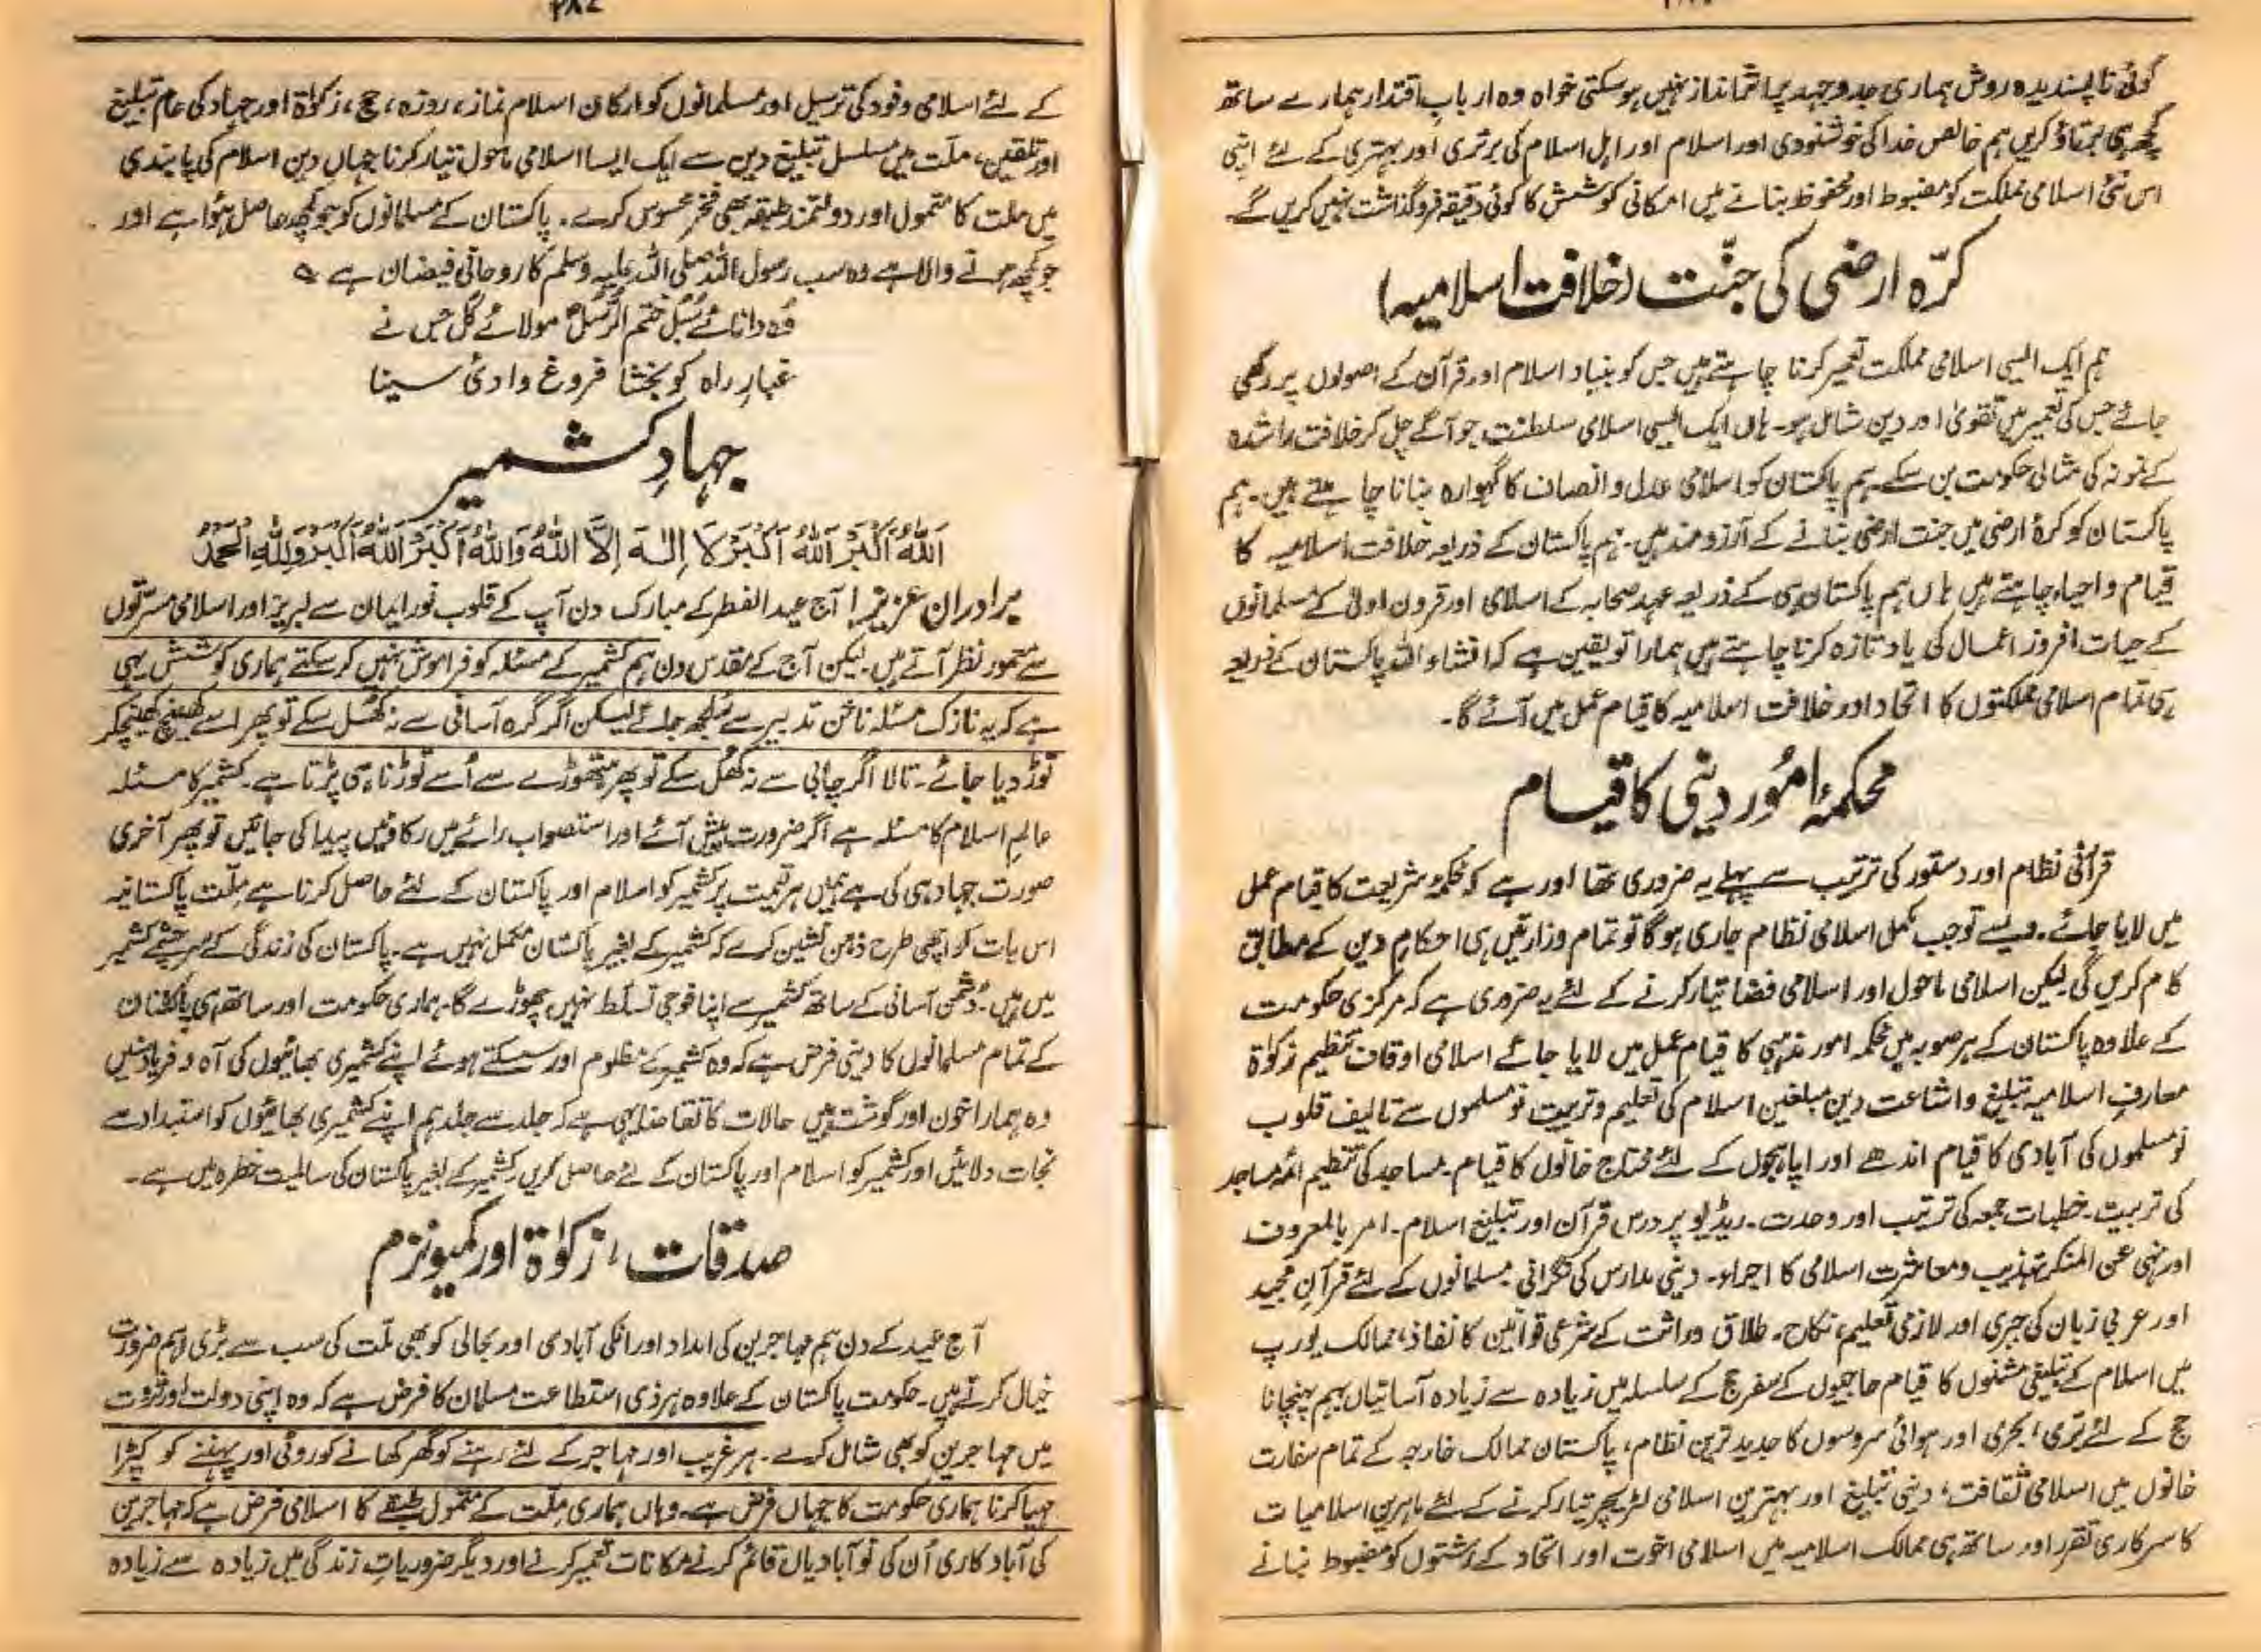 کوئی ناپسندیدہ روش ہماری جدوجہد پر اثر انداز نہیں ہو سکتی خواہ وہ ارباب اقتدار ہمارے ساتھ
کچھ ہی برتاؤ کریں ہم خالص خدا کی خوشنودی اور اسلام اور اہل اسلام کی برتری اور بہتری کے لئے اپنی
اس نئی اسلامی مملکت کو مضبوط اور محفوظ بنانے میں امکانی کوشش کا کوئی دقیقہ فروگذاشت نہیں کریں گے۔
کرّہ ارضی کی جنّت (خلافت اسلامیہ)
ہم ایک ایسی اسلامی مملکت تعمیر کرنا چاہتے ہیں جس کو بنیاد اسلام اور قرآن کے اصولوں پر رکھی
جائے جس کی تعمیر میں تقویٰ اور دین شامل ہو۔ ہاں ایک ایسی اسلامی سلطنت جو آگے چل کر خلافت راشدہ
کے نمونہ کی مثالی حکومت بن سکے۔ ہم پاکستان کو اسلامی عدل و انصاف کا گہوارہ بنانا چاہتے ہیں۔ ہم
پاکستان کو کرۂ ارضی میں جنت ارضی بنانے کے آرزومند ہیں۔ ہم پاکستان کے ذریعہ خلافت اسلامیہ کا
قیام و احیاء چاہتے ہیں ہاں ہم پاکستان ہی کے ذریعہ عہد صحابہ کے اسلامی اور قرون اولیٰ کے مسلمانوں
کے حیات افروز اعمال کی یاد تازہ کرنا چاہتے ہیں ہمارا تو یقین ہے کہ انشاء اللہ پاکستان کے ذریعہ
ہی تمام اسلامی مملکتوں کا اتحاد اور خلافت اسلامیہ کا قیام عمل میں آئے گا۔
محکمۂ امُور دینی کا قیام
قرآنی نظام اور دستور کی ترتیب سے پہلے یہ ضروری تھا اور ہے کہ محکمۂ شریعت کا قیام عمل
میں لایا جائے۔ ویسے تو جب مکمل اسلامی نظام جاری ہوگا تو تمام وزارتیں ہی احکام دین کے مطابق
کام کریں گی لیکن اسلامی ماحول اور اسلامی فضا تیار کرنے کے لئے یہ ضروری ہے کہ مرکزی حکومت
کے علاوہ پاکستان کے ہر صوبہ میں محکمہ امور مذہبی کا قیام عمل میں لایا جائے اسلامی اوقاف تنظیم زکوٰۃ
معارف اسلامیہ تبلیغ و اشاعت دین مبلغین اسلام کی تعلیم و تربیت نومسلموں سے تالیف قلوب
نومسلموں کی آبادی کا قیام اندھے اور اپاہجوں کے لئے محتاج خانوں کا قیام۔ مساجد کی تنظیم ائمہ مساجد
کی تربیت۔ خطبات جمعہ کی ترتیب اور وحدت۔ ریڈیو پر درس قرآن اور تبلیغ اسلام۔ امر بالمعروف
اور نہی عن المنکر تہذیب و معاشرت اسلامی کا اجراء۔ دینی مدارس کی نگرانی۔ مسلمانوں کے لئے قرآن مجید
اور عربی زبان کی جبری اور لازمی تعلیم، نکاح۔ طلاق وراثت کے شرعی قوانین کا نفاذ، ممالک یورپ
میں اسلام کے تبلیغی مشنوں کا قیام حاجیوں کے سفر حج کے سلسلہ میں زیادہ سے زیادہ آسانیاں بہم پہنچانا
حج کے لئے بری، بحری اور ہوائی سروسوں کا جدید ترین نظام، پاکستان ممالک خارجہ کے تمام سفارت
خانوں میں اسلامی ثقافت، دینی تبلیغ اور بہترین اسلامی لٹریچر تیار کرنے کے لئے ماہرین اسلامیات
کا سرکاری تقرر اور ساتھ ہی ممالک اسلامیہ میں اسلامی اخوت اور اتحاد کے رشتوں کو مضبوط بنانے
کے لئے اسلامی وفود کی ترسیل اور مسلمانوں کو ارکان اسلام نماز، روزہ، حج، زکوٰۃ اور جہاد کی عام تبلیغ
اور تلقین، ملّت میں مسلسل تبلیغ دین سے ایک ایسا اسلامی ماحول تیار کرنا جہاں دین اسلام کی پابندی
میں ملت کا متمول اور دولتمند طبقہ بھی فخر محسوس کرے۔ پاکستان کے مسلمانوں کو جو کچھ حاصل ہؤا ہے اور
جو کچھ ہونے والا ہے وہ سب رسول اللہ صلی اللہ علیہ وسلم کا روحانی فیضان ہے ؎
وُہ دانائے سُبل ختم الرُّسل مولائے کُل جس نے
غبارِ راہ کو بخشا فروغ وادیٔ سینا
جہادِ کشمیر
اَللّٰہُ اَکْبَرُ اَللّٰہُ اَکْبَرُ لَا اِلٰہَ اِلَّا اللّٰہُ وَاللّٰہُ اَکْبَرُ اَللّٰہُ اَکْبَرُ وَلِلّٰہِ الْحَمْدُ
برادران عزیز! آج عید الفطر کے مبارک دن آپ کے قلوب نور ایمان سے لبریز اور اسلامی مسرّتوں
سے معمور نظر آتے ہیں۔ لیکن آج کے مقدس دن ہم کشمیر کے مسئلہ کو فراموش نہیں کر سکتے ہماری کوشش یہی
ہے کہ یہ نازک مسئلہ ناخن تدبیر سے سُلجھ جائے لیکن اگر گرہ آسانی سے نہ کھُل سکے تو پھر اسے کھینچ کھینچکر
توڑ دیا جائے۔ تالا اگر چابی سے نہ کھُل سکے تو پھر ہتھوڑے سے اُسے توڑنا ہی پڑتا ہے۔ کشمیر کا مسئلہ
عالمِ اسلام کا مسئلہ ہے اگر ضرورت پیش آئے اور استصواب رائے میں رکاوٹیں پیدا کی جائیں تو پھر آخری
صورت جہاد ہی کی ہے ہمیں ہر قیمت پر کشمیر کو اسلام اور پاکستان کے لئے حاصل کرنا ہے ملّت پاکستانیہ
اس بات کو اچھی طرح ذہن نشین کرے کہ کشمیر کے بغیر پاکستان مکمل نہیں ہے۔ پاکستان کی زندگی کے سرچشمے کشمیر
میں ہیں۔ دُشمن آسانی کے ساتھ کشمیر سے اپنا فوجی تسلّط نہیں چھوڑے گا۔ ہماری حکومت اور ساتھ ہی پاکستان
کے تمام مسلمانوں کا دینی فرض ہے کہ وہ کشمیر کے مظلوم اور سسکتے ہوئے اپنے کشمیری بھائیوں کی آہ و فریاد سنیں
وہ ہمارا خون اور گوشت ہیں حالات کا تقاضا یہی ہے کہ جلد سے جلد ہم اپنے کشمیری بھائیوں کو استبداد سے
نجات دلائیں اور کشمیر کو اسلام اور پاکستان کے لئے حاصل کریں کشمیر کے بغیر پاکستان کی سالمیت خطرہ میں ہے۔
صدقات، زکوٰۃ اور کمیونزم
آج عید کے دن ہم مہاجرین کی امداد اور انکی آبادی اور بحالی کو بھی ملّت کی سب سے بڑی اہم ضرورت
خیال کرتے ہیں۔ حکومت پاکستان کے علاوہ ہر ذی استطاعت مسلمان کا فرض ہے کہ وہ اپنی دولت اور ثروت
میں مہاجرین کو بھی شامل کرے۔ ہر غریب اور مہاجر کے لئے رہنے کو گھر کھانے کو روٹی اور پہننے کو کپڑا
مہیا کرنا ہماری حکومت کا جہاں فرض ہے۔ وہاں ہماری ملّت کے متمول طبقے کا اسلامی فرض ہے کہ مہاجرین
کی آباد کاری اُن کی نو آبادیاں قائم کرنے مکانات تعمیر کرنے اور دیگر ضروریات زندگی میں زیادہ سے زیادہ